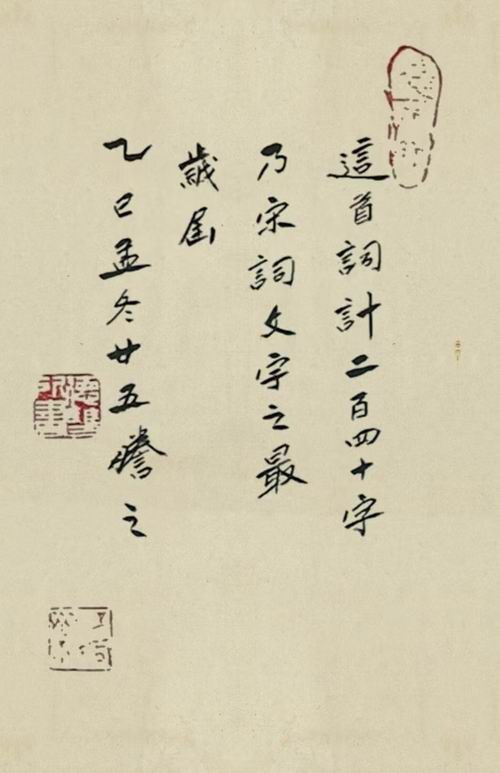 這首詞計二百四十字
乃宋詞文字之最
歲屆
乙巳孟冬廿五謄之